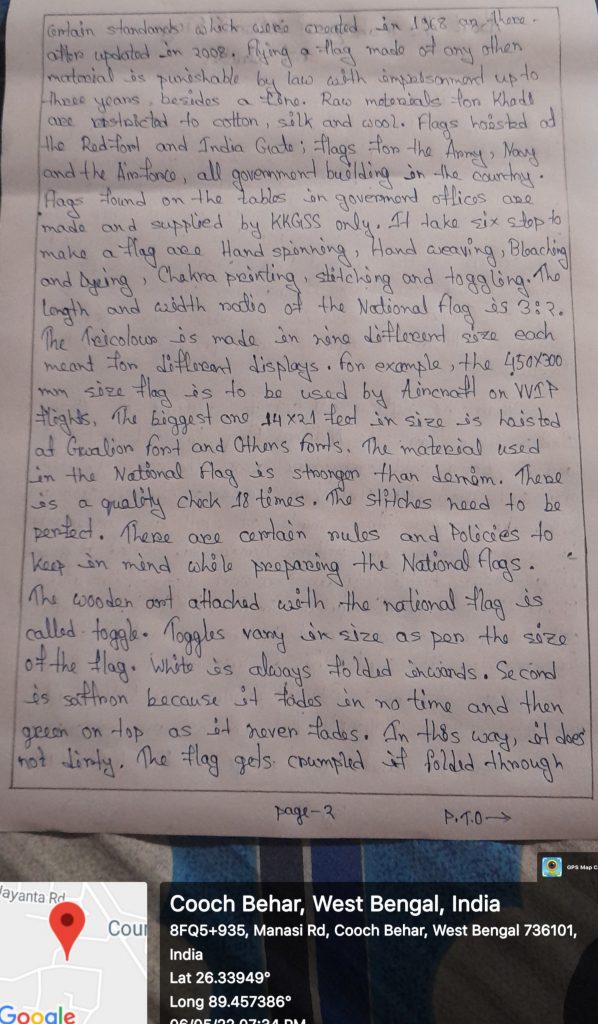 certain standards which were created in 1968 an there-
after updated in 2008. Flying a flag made of any other
material is punishable by law with imprisonment up to
three years, besides a fine. Raw materials for Khadi
are restricted to cotton, silk and wool. Flags hoisted at
the Redfort and India Gate; flags for the Army, Navy
and the Airforce, all government building in the country.
flags found on the tables in government offices are
made and supplied by KKGSS only. It take six step to
make a flag are Hand spinning, Hand weaving, Bleaching
and Dyeing, Chakra printing, stitching and toggling. The
length and width ratio of the National flag is 3:2.
The Tricolour is made in nine different size each
meant for different displays. for example, the 450x300
mm size flag is to be used by Aircraft on VVIP
flights. The biggest one 14x21 feet in size is hoisted
at Gwalior fort and Others forts. The material used
in the National flag is stronger than denim. There
is a quality check 18 times. The stitches need to be
perfect. There are certain rules and Policies to
keep in mind while preparing the National flags.
The wooden art attached with the national flag is
called toggle. Toggles vary in size as per the size
of the flag. White is always folded inwards. Second
is saffron because it fades in no time and then
green on top as it never fades. In this way, it does
not dirty. The flag gets crumpled if folded through
page-2 P.T.O→
GPS Map C
Jayanta Rd
Cour
Google
Cooch Behar, West Bengal, India
8FQ5+935, Manasi Rd, Cooch Behar, West Bengal 736101,
India
Lat 26.33949°
Long 89.457386°
06/05/22 07:34 PM